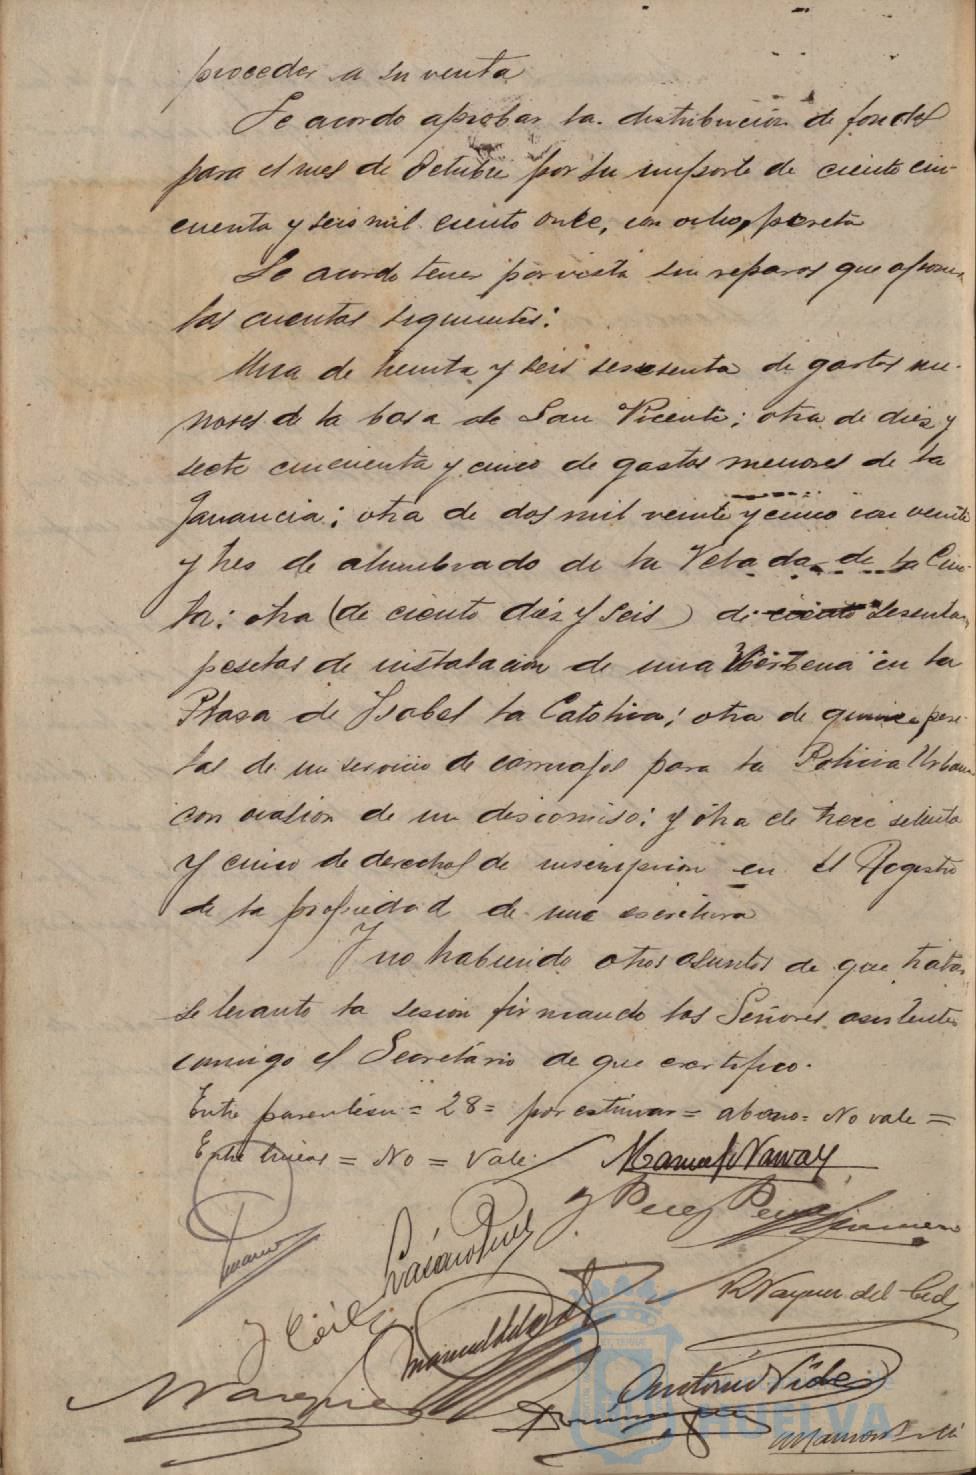 proceder a su venta
Se acordo aprobar la distribucion de fondos
para el mes de Octubre por su importe de ciento cin-
cuenta y seis mil ciento once, con ocho, peseta
Se acordo tener por vista sin reparos que oponer
las cuentas siguientes:
Una de treinta y seis sesenta de gastos me-
nores de la casa de San Vicente; otra de diez y
siete cincuenta y cinco de gastos menores de la
otra de dos mil veinte y cinco con veinte
y tres de alumbrado de la Velada de la Cin-
ta; otra (de ciento diez y seis) de ciento sesenta
pesetas de instalacion de una Verbena en la
Plaza de Ysabel la Catolica; otra de quince pese-
tas de un servicio de carruajes para la Policia Urbana
con ocasion de un decomiso; y otra de trece setenta
y cinco de derechos de inscripcion en el Registro
de la propiedad de una escritura
Y no habiendo otros asuntos de que tratar
se levanto la sesion firmando los Señores asistentes
conmigo el Secretario de que certifico.
Entre parentesis = 28 = por estimar = abono = No vale =
Entre lineas = No = Vale.
Manuel Narvaez
y Perez
R Vazquez del Cid
Manuel
Marquez
Antonio Vides
Dominguez
HUELVA